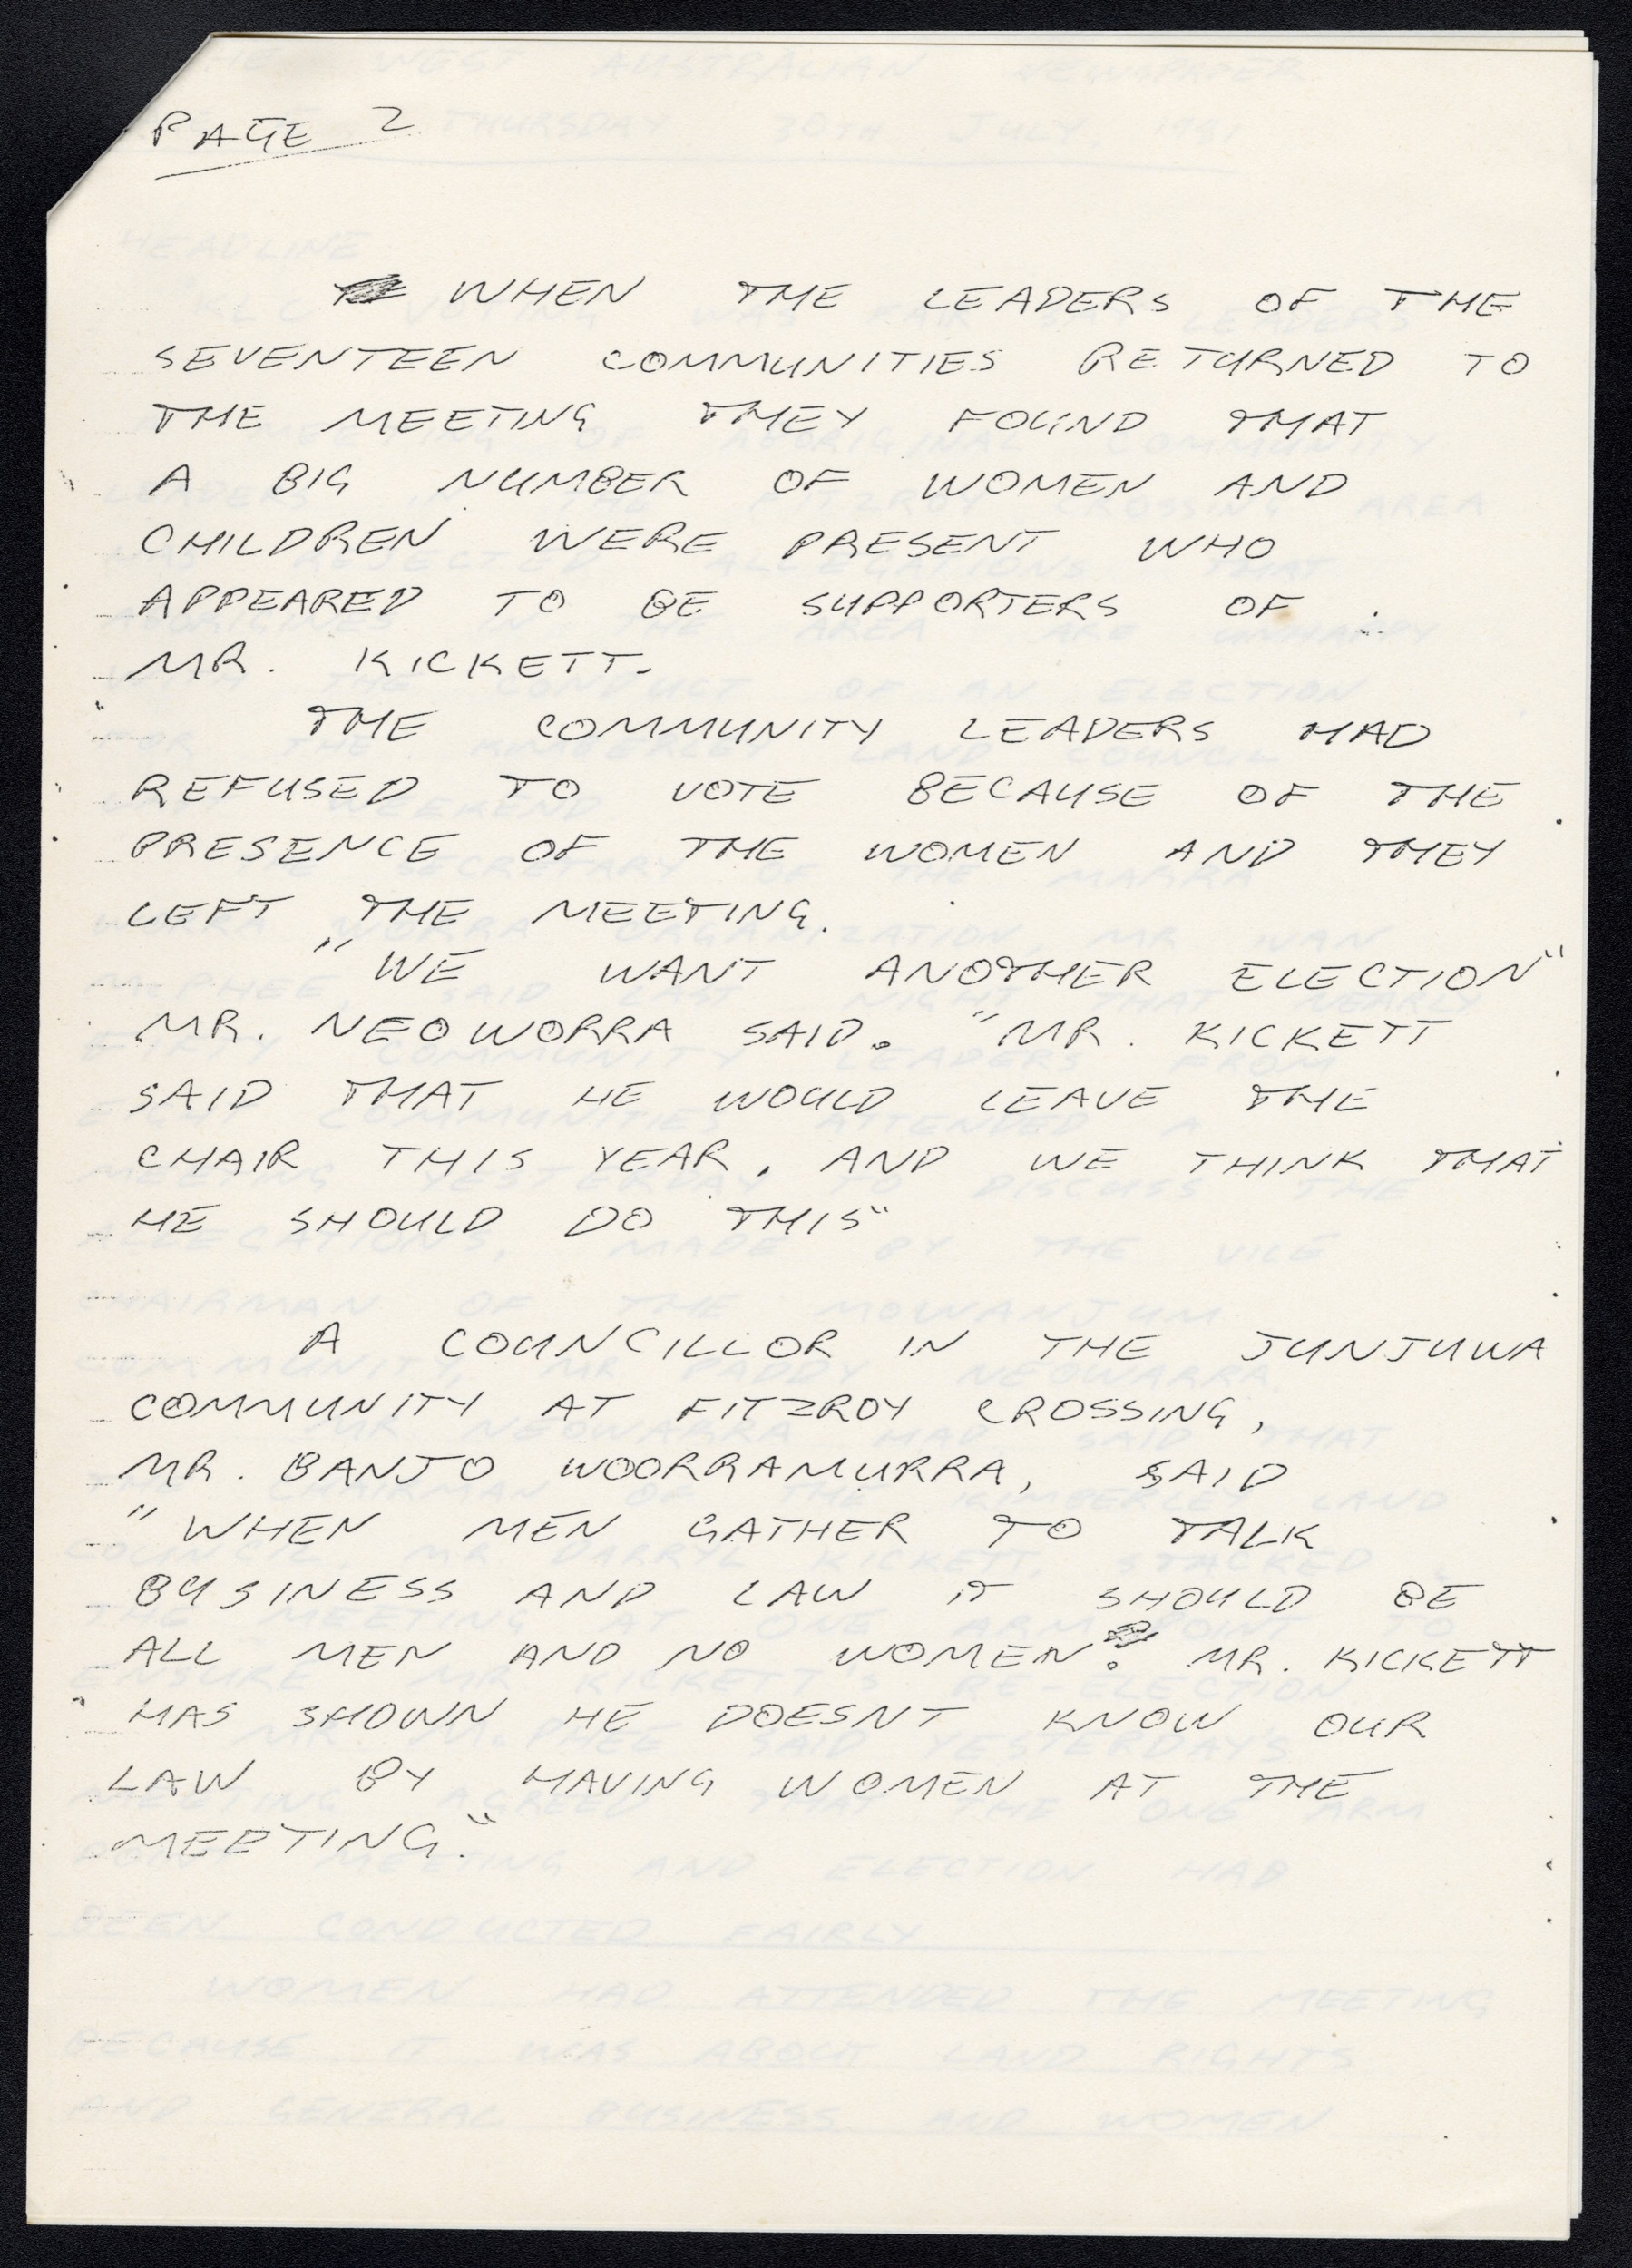 PAGE 2
WHEN THE LEADERS OF THE
SEVENTEEN COMMUNITIES RETURNED TO
THE MEETING THEY FOUND THAT
A BIG NUMBER OF WOMEN AND
CHILDREN WERE PRESENT WHO
APPEARED TO BE SUPPORTERS OF
MR. KICKETT.
THE COMMUNITY LEADERS HAD
REFUSED TO VOTE BECAUSE OF THE
PRESENCE OF THE WOMEN AND THEY
LEFT THE MEETING.
"WE WANT ANOTHER ELECTION"
MR. NEOWORRA SAID. "MR. KICKETT
SAID THAT HE WOULD LEAVE THE
CHAIR THIS YEAR, AND WE THINK THAT
HE SHOULD DO THIS"
A COUNCILLOR IN THE JUNJUWA
COMMUNITY AT FITZROY CROSSING,
MR. BANJO WOORRAMURRA, SAID
"WHEN MEN GATHER TO TALK
BUSINESS AND LAW IT SHOULD BE
ALL MEN AND NO WOMEN. MR. KICKETT
HAS SHOWN HE DOESNT KNOW OUR
LAW BY HAVING WOMEN AT THE
MEETING."